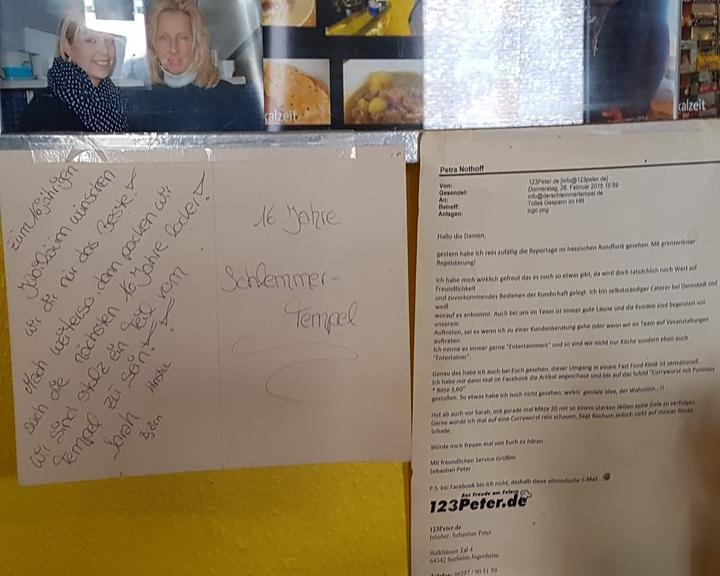 kalzeit
kalzeit
Zum 16 jährigen
Jubiläum wünschen
wir dir nur das Beste!
Mach weiterso, dann packen wir
auch die nächsten 16 Jahre locker!
Wir sind stolz ein Teil vom
Tempel zu sein!
Sarah
Björn
16 Jahre
Schlemmer-
Tempel
Petra Nothoff
Von: 123Peter.de [info@123peter.de]
Gesendet: Donnerstag, 26. Februar 2015 15:59
An: info@derschlemmertempel.de
Betreff: Tolles Gespann im HR
Anlagen: logo.png
Hallo die Damen,
gestern habe ich rein zufällig die Reportage im hessischen Rundfunk gesehen. Mit grenzenloser
Begeisterung!
Ich habe mich wirklich gefreut das es noch so etwas gibt, da wird doch tatsächlich noch Wert auf
Freundlichkeit
und zuvorkommendes Bedienen der Kundschaft gelegt. Ich bin selbstständiger Caterer bei Darmstadt und
weiß
worauf es ankommt. Auch bei uns im Team ist immer gute Laune und die Kunden sind begeistert von
unserem
Auftreten, sei es wenn ich zu einer Kundenberatung gehe oder wenn wir im Team auf Veranstaltungen
auftreten.
Ich nenne es immer gerne "Entertainment" und so sind wir nicht nur Köche sondern eben auch
"Entertainer".
Genau das habe ich auch bei Euch gesehen, dieser Umgang in einem Fast Food Kiosk ist sensationell.
Ich habe mir dann mal im Facebook die Artikel angeschaut und bin auf das Schild "Currywurst mit Pommes
* Bitte 3,60"
gestoßen. So etwas habe ich noch nicht gesehen, welch' geniale Idee, der Wahnsinn...!!
Hut ab auch vor Sarah, mit gerade mal Mitte 20 mit so einem starken Willen seine Ziele zu verfolgen.
Gerne würde ich mal auf eine Currywurst rein schauen, liegt Bochum jedoch nicht auf meiner Route.
Schade.
Würde mich freuen mal von Euch zu hören.
Mit freundlichen Service-Grüßen
Sebastian Peter
P.S. bei Facebook bin ich nicht, deshalb diese altmodische E-Mail...
Aus Freude am Feiern
123Peter.de
123Peter.de
Inhaber: Sebastian Peter
Balkhäuser Tal 4
64342 Seeheim-Jugenheim
Telefon: 06257 / 90 51 59